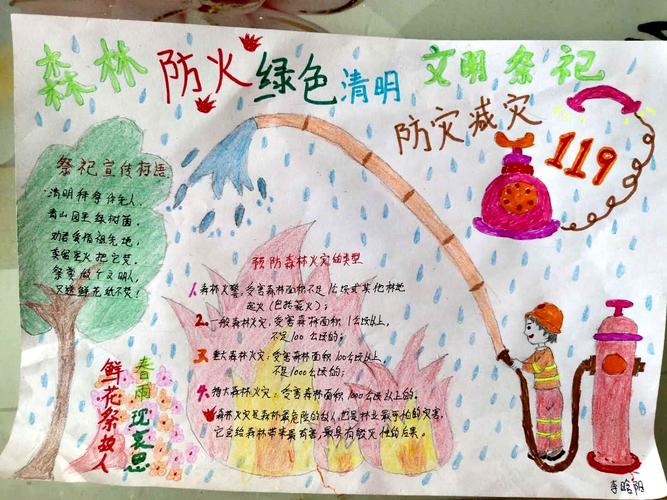 森林防火绿色清明文明祭祀
防灾减灾
119
祭祀宣传标语
清明拜祭许先人,
青山园里绿树茵,
劝君爱惜祖先地,
莫留星火把它焚,
祭奠做个文明人,
只送鲜花纸不焚!
春雨现哀思
鲜花祭故人
预防森林火灾的类型
1.森林火警:受害森林面积不足1公顷或其他林地
起火(包括荒火);
2.一般森林火灾:受害森林面积1公顷以上,
不足100公顷的;
3.重大森林火灾:受害森林面积100公顷以上,
不足1000公顷的;
4.特大森林火灾:受害森林面积1000公顷以上的。
森林火灾是森林最危险的敌人,也是林业最可怕的灾害,
它会给森林带来最有害,最具有毁灭性的后果。
李晗阳